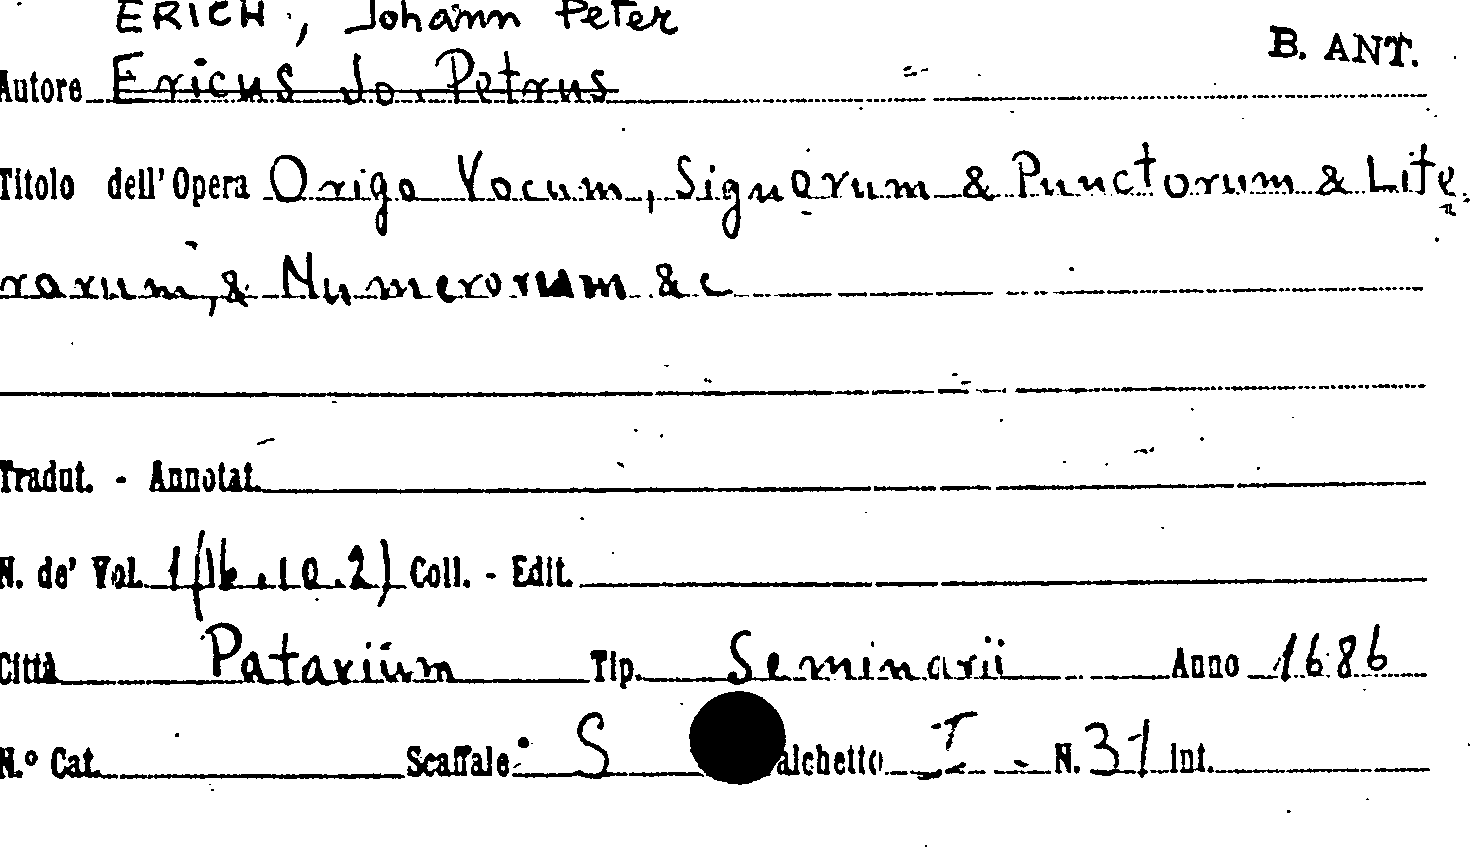 ERICH, Johann Peter
B. ANT.
Autore Ericus Jo. Petrus
Titolo dell'Opera Origo Vocum, Signorum & Punctorum & Lite-
rarum, & Numerorum &c
Tradut. - Annotat.
N. de' Vol. 1 (16.10.2) Coll. - Edit.
Città Patavium Tip. Seminarii Anno 1686
N.º Cat. Scaffale: S alchetto I - N. 31 Int.